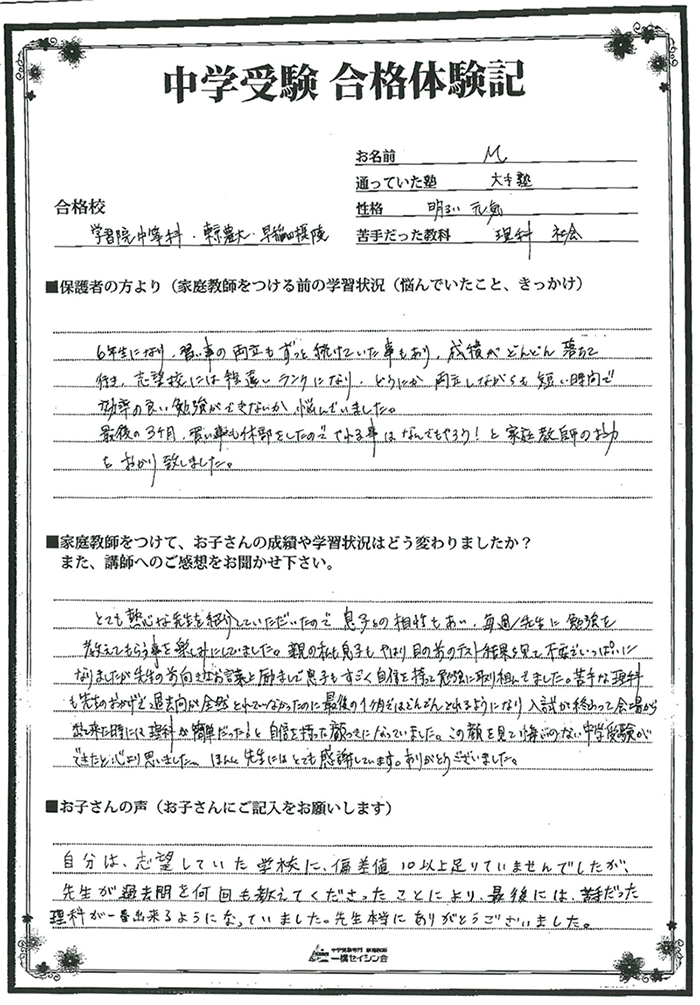 中学受験 合格体験記
お名前 M
通っていた塾 大手塾
合格校
性格 明るい 元気
学習院中等科・東京農大・早稲田摂陵
苦手だった教科 理科 社会
■保護者の方より（家庭教師をつける前の学習状況（悩んでいたこと、きっかけ）
6年生になり、習い事の両立もずっと続けていた事もあり、成績がどんどん落ちて
行き、志望校には程遠いランクになり、どうにか両立しながらも短い時間で
効率の良い勉強ができないか悩んでいました。
最後の3ヶ月、習い事も休部をしたのでやれる事はなんでもやろう！と家庭教師のお力
をおかり致しました。
■家庭教師をつけて、お子さんの成績や学習状況はどう変わりましたか？
また、講師へのご感想をお聞かせ下さい。
とても熱心な先生を紹介していただいたので息子との相性もあい、毎週先生に勉強を
教えてもらう事を楽しみにしていました。親の私も息子もやはり目の前のテスト結果を見て不安でいっぱいに
なりましたが先生の前向きなお言葉と励ましで息子もすごく自信を持って勉強に取り組んでました。苦手な理科
も先生のおかげで過去問が全然とれていなかったのに最後の1ヶ月ではどんどんとれるようになり入試が終わって会場から
出て来た時には理科が簡単だった！と自信を持った顔つきになっていました。この顔を見て悔いのない中学受験が
できたと心より思いました。ほんと先生にはとても感謝しています。ありがとうございました。
■お子さんの声（お子さんにご記入をお願いします）
自分は、志望していた学校に、偏差値10以上足りていませんでしたが、
先生が過去問を何回も教えてくださったことにより、最後には、苦手だった
理科が一番出来るようになっていました。先生本当にありがとうございました。
中学受験専門 家庭教師
一橋セイシン会